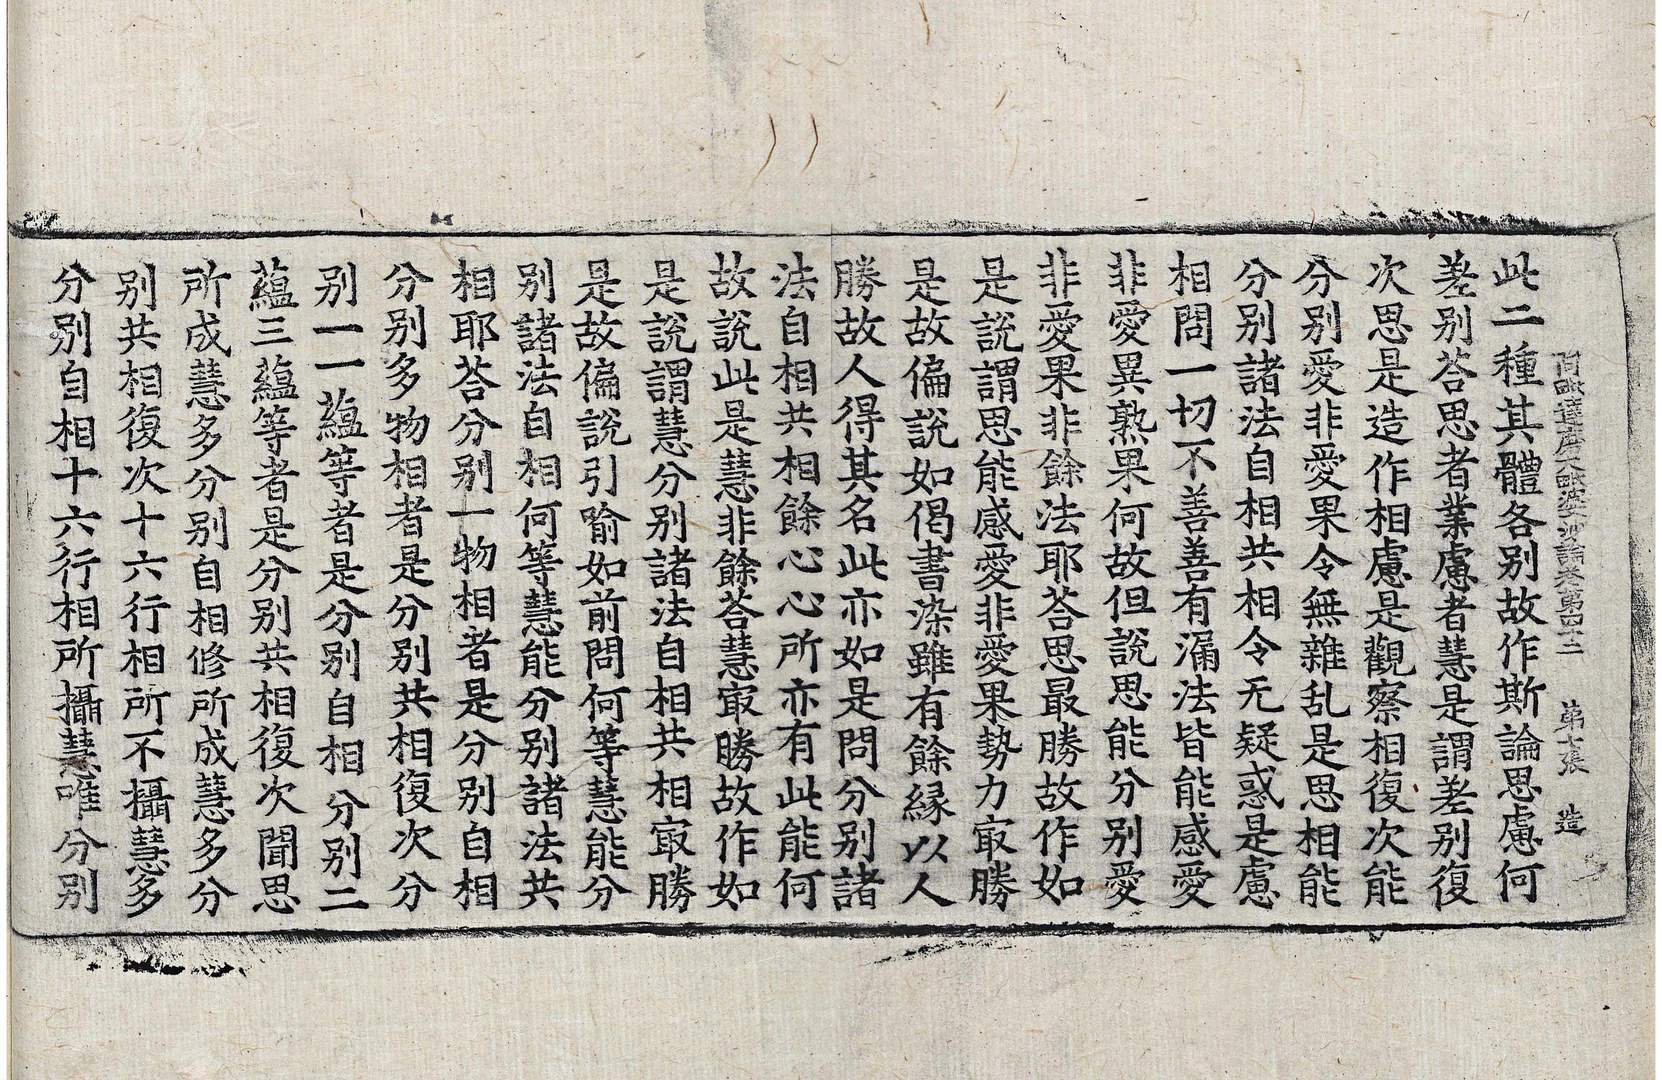 阿毗達磨大毗婆沙論卷第四十二 第十張 造
此二種其體各别故作斯論思慮何
差别荅思者業慮者慧是謂差别復
次思是造作相慮是觀察相復次能
分别愛非愛果令無雜乱是思相能
分别諸法自相共相令无疑惑是慮
相問一切不善善有漏法皆能感愛
非愛異熟果何故但說思能分别愛
非愛果非餘法耶荅思最勝故作如
是說謂思能感愛非愛果勢力㝡勝
是故偏說如偈書染雖有餘縁以人
勝故人得其名此亦如是問分别諸
法自相共相餘心心所亦有此能何
故說此是慧非餘荅慧㝡勝故作如
是說謂慧分别諸法自相共相㝡勝
是故偏說引喻如前問何等慧能分
别諸法自相何等慧能分别諸法共
相耶荅分别一物相者是分别自相
分别多物相者是分别共相復次分
别一一蘊等者是分别自相分别二
蘊三蘊等者是分别共相復次聞思
所成慧多分别自相修所成慧多分
别共相復次十六行相所不攝慧多
分别自相十六行相所攝慧唯分别